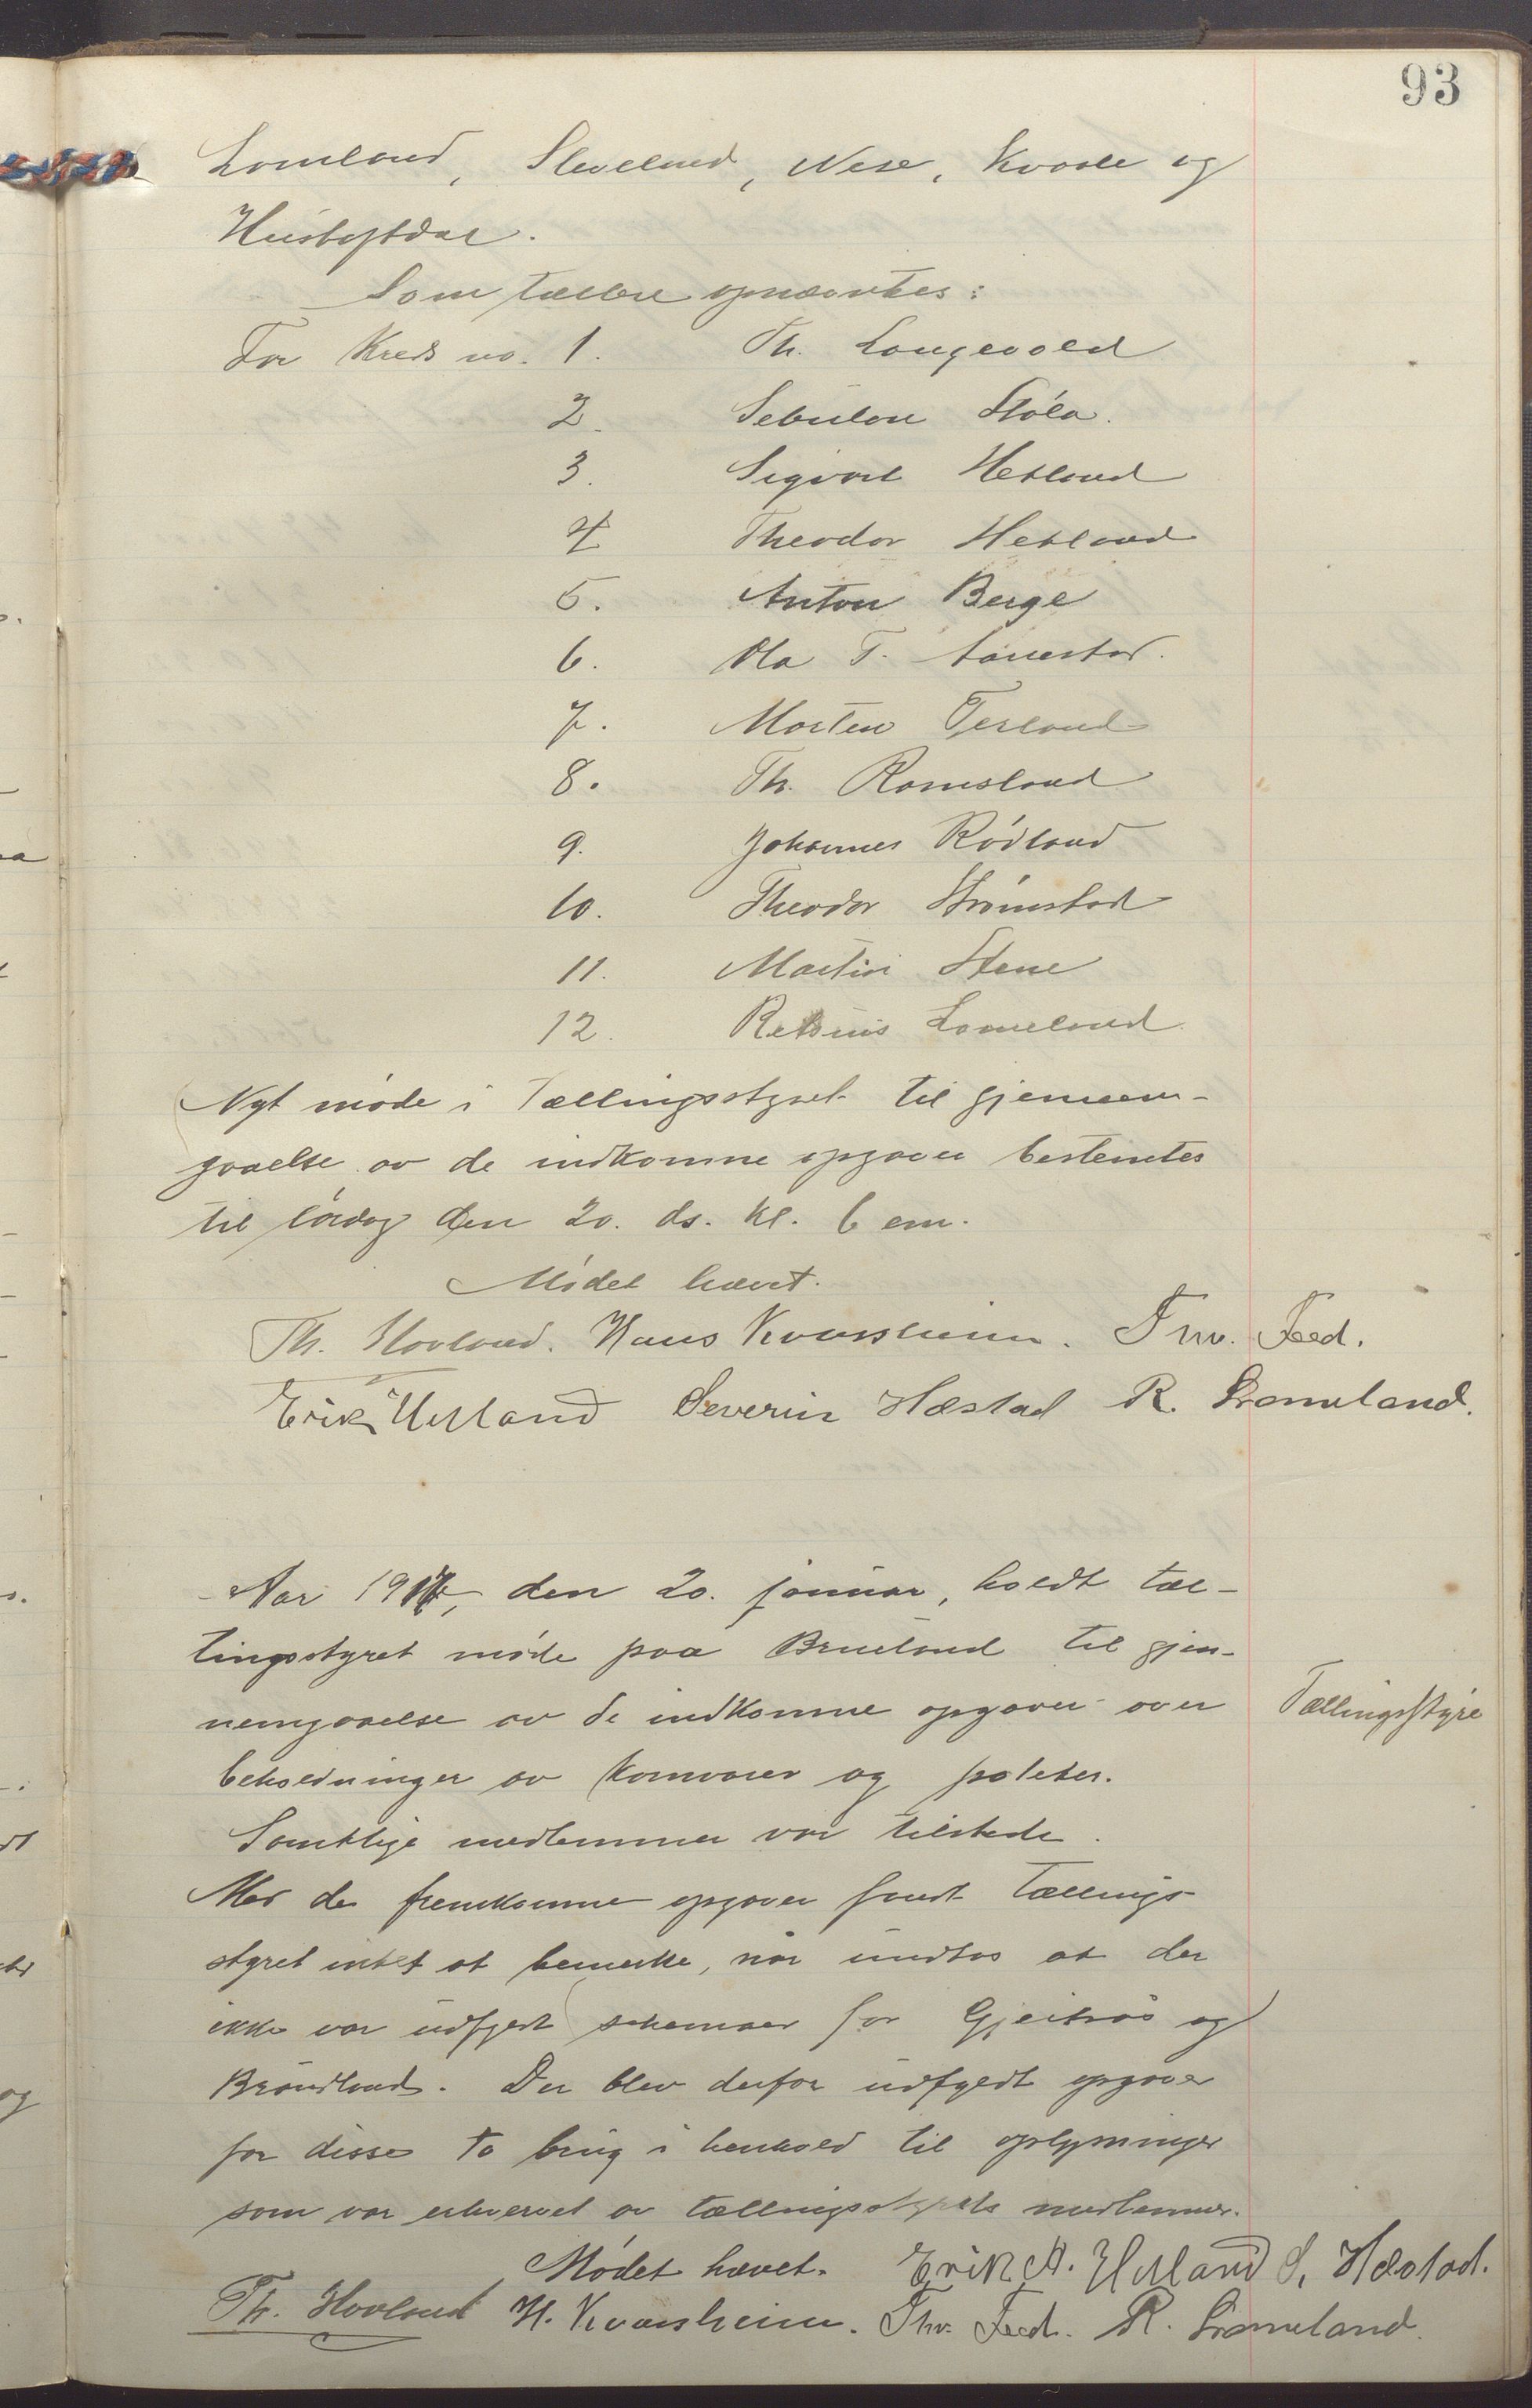 93
Lomeland, Sleveland, Nese, Kvaale og
Hustoftdal.
Som tællere opnævntes:
For Kreds no. 1. Th. Langevold
2. Sebulon Støla.
3. Sigvart Hetland
4 Theodor Hetland
5. Anton Berge
6. Ola T. Aarrestad.
7. Morten Terland
8. Th. Ramsland
9. Johannes Rødland
10. Theodor Strømstad
11. Martin Stene
12. Retsius Lomeland.
Nyt møde i Tællingsstyret til gjennem-
gaaelse av de indkomne opgaver bestemtes
til lørdag den 20. ds. kl. 6 em.
Mødet hævet.
Th. Hovland. Hans Kvassheim. Thv. Feed.
Erik Hetland Severin Hæstad R. Lomeland.
Aar 1917, den 20. januar, holdt tæl-
lingsstyret møde paa Brueland til gjen-
nemgaaelse av de indkomne opgaver over
Tællingsstyre
beholdninger av kornvarer og poteter.
Samtlige medlemmer var tilstede.
Med de fremkomne opgaver fandt tællings-
styret intet at bemerke, når undtas at der
ikke var utfyldt schemaer for Gjeitrøs og
Brøndland. Der blev derfor utfyldt opgaver
for disse to brug i henhold til oplysninger
som var erhvervet av tællingsstyrets medlemmer.
Mødet hævet. Erik A. Hetland S. Hæstad.
Th. Hovland H. Kvassheim. Thv. Feed. R. Lomeland.